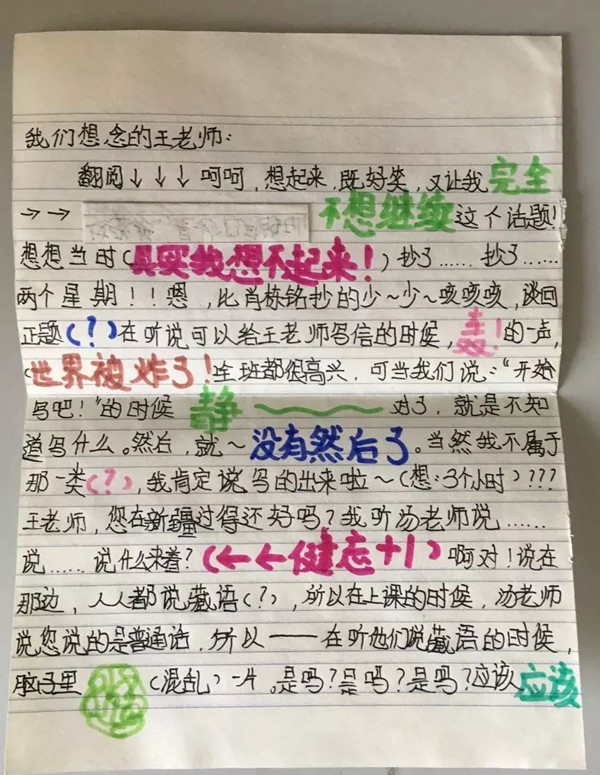 我们想念的王老师：
翻阅↓↓↓呵呵，想起来，既好笑，又让我完全
→→ 不想继续这个话题！
想想当时（其实我想不起来！）抄了……抄了……
两个星期！！嗯，比肖栋铭抄的少～少～咳咳咳，谈回
正题（？）在听说可以给王老师写信的时候，轰！的一声，
（世界被炸了！全班都很高兴，可当我们说：“开始
写吧！”的时候 静～～～ 对了，就是不知
道写什么。然后，就～没有然后了。当然我不属于
那一类（？），我肯定说写的出来啦～（想：3个小时）？？？
王老师，您在新疆过得还好吗？我听汤老师说……
说……说什么来着？（←←健忘+1）啊对！说在
那边，人人都说藏语（？），所以在上课的时候，汤老师
说您说的是普通话，所以——在听他们说藏语的时候，
脑子里（混乱）一片。是吗？是吗？是吗？应该应该